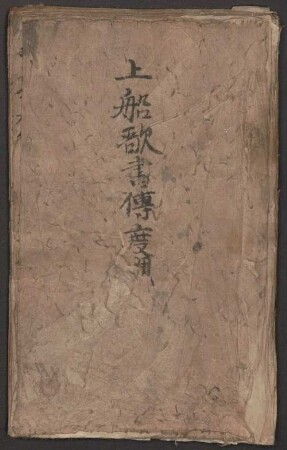 上船歌書傳度用